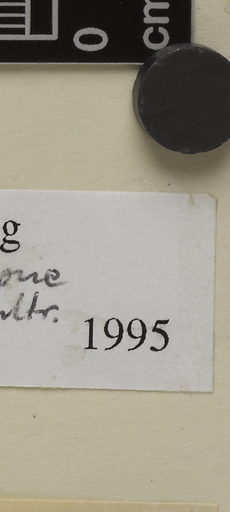 0 cm
g
one
ltr.
1995